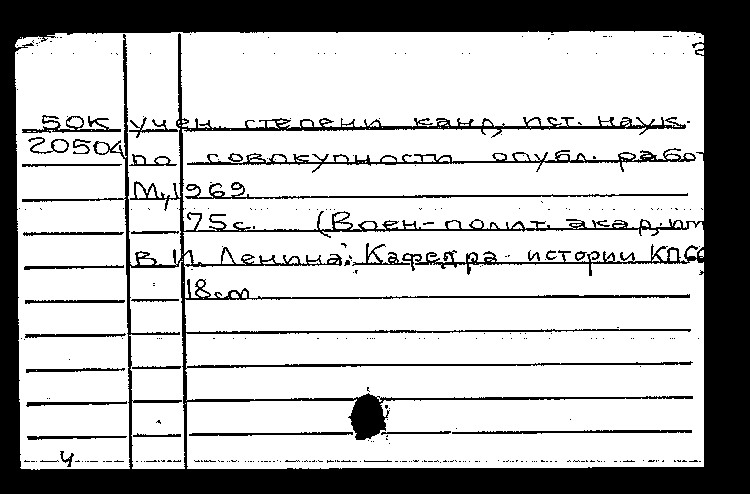 2
50К учен. степени канд. ист. наук.
20504 по совокупности опубл. работ
М., 1969.
75с. (Воен.-полит. акад. им
В.И. Ленина. Кафедра истории КПСС
18см.
4